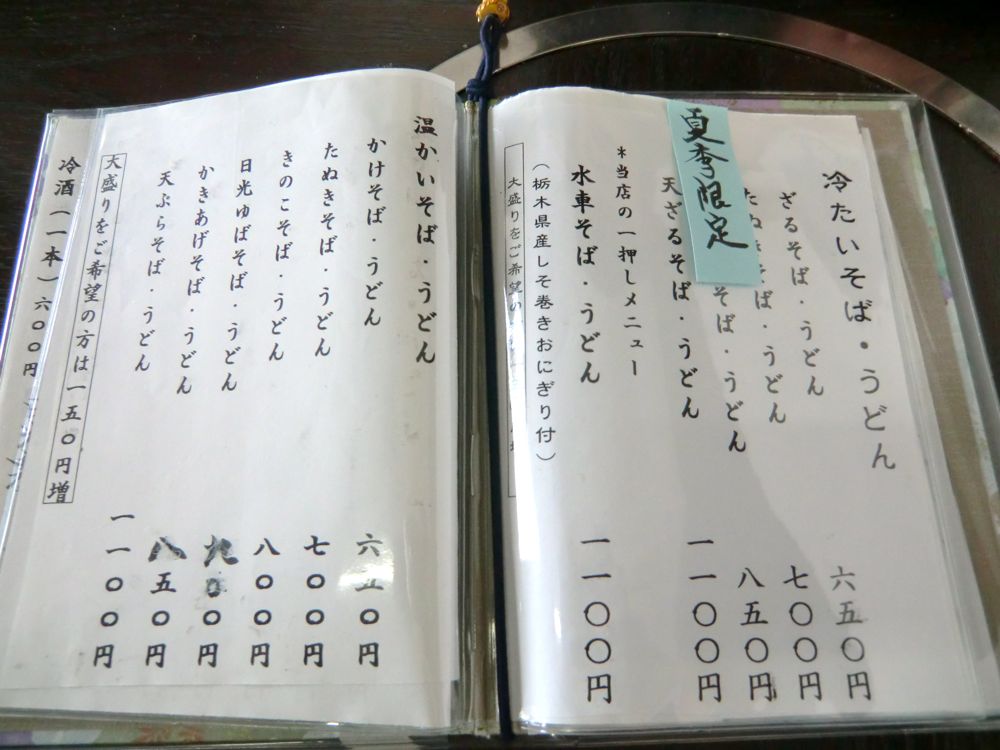 夏季限定
冷たいそば・うどん
ざるそば・うどん 六五〇円
たぬきそば・うどん 七〇〇円
そば・うどん 八五〇円
天ざるそば・うどん 一一〇〇円
*当店の一押しメニュー
水車そば・うどん 一一〇〇円
(栃木県産しそ巻きおにぎり付)
大盛りをご希望の
温かいそば・うどん
かけそば・うどん 六五〇円
たぬきそば・うどん 七〇〇円
きのこそば・うどん 八〇〇円
日光ゆばそば・うどん 九〇〇円
かきあげそば・うどん 八五〇円
天ぷらそば・うどん 一一〇〇円
大盛りをご希望の方は一五〇円増
冷酒(一一本)六〇〇円